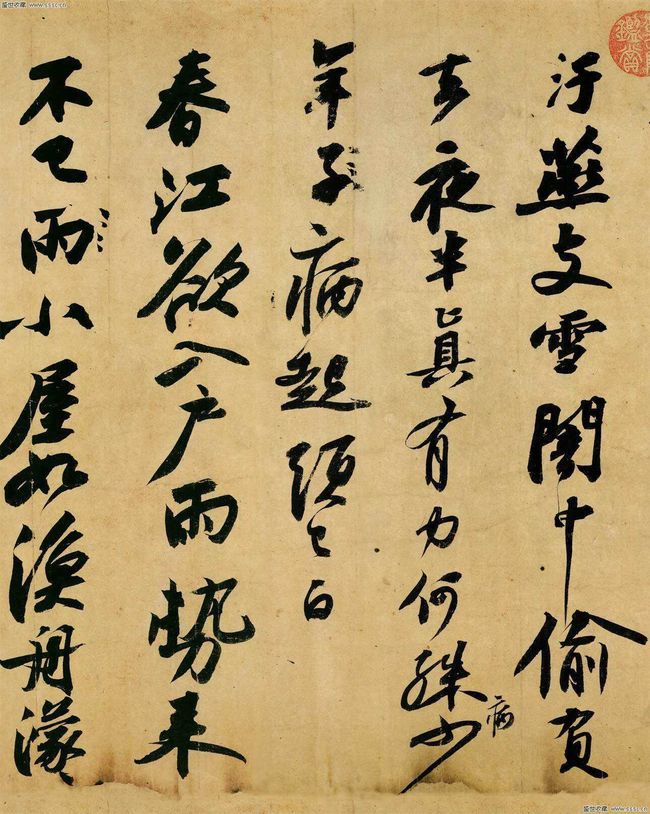 汙燕支雪闇中偷負
去夜半真有力何殊病少
年子病起頭已白
春江欲入戶雨勢來
不已雨小屋如漁舟濛〻
盛世收藏 www.sssc.cn
盛世收藏 www.sssc.cn